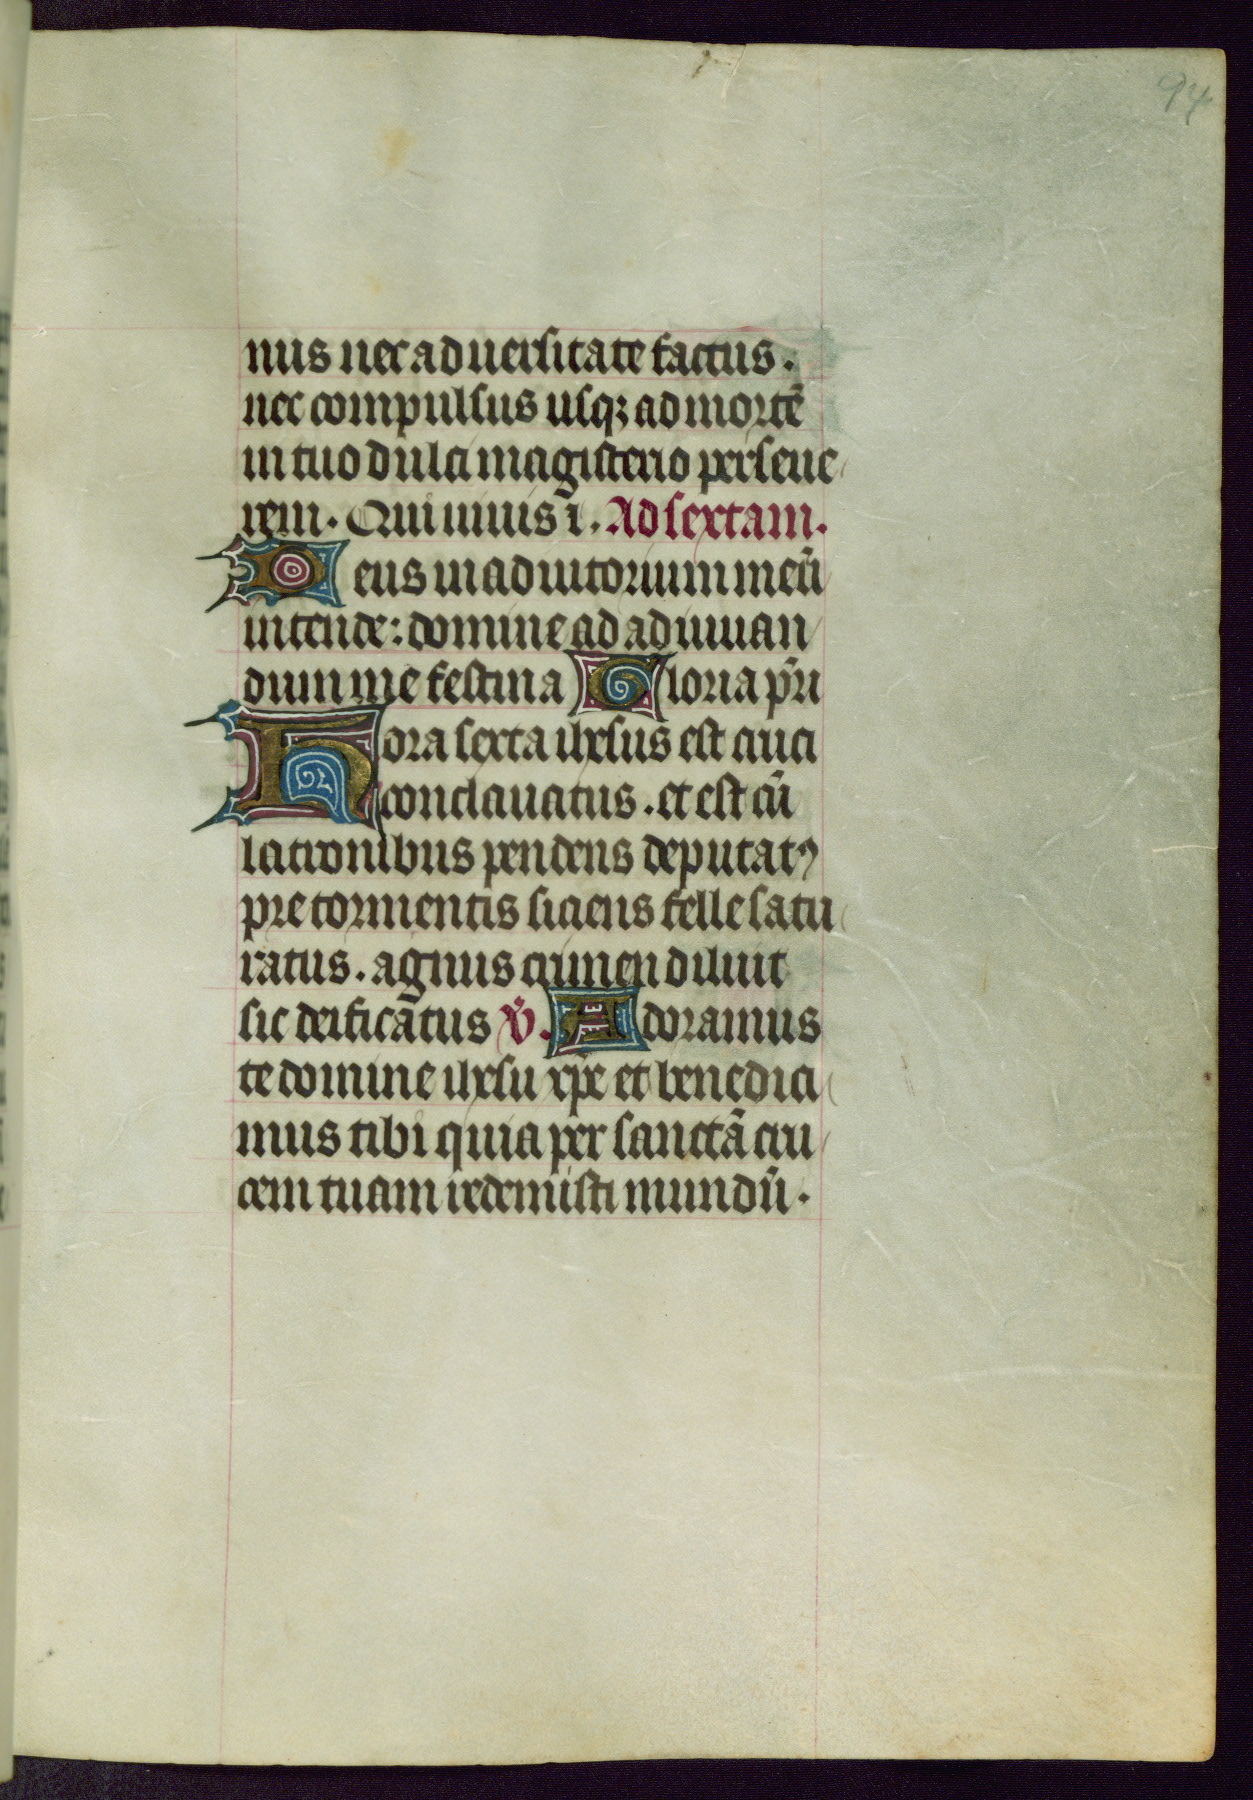 94
nus nec aduersitate factus.
nec compulsus usq; ad mortē
in tuo dulci magisterio perseue
rem. Qui uiuis ī. Ad sextam.
Deus in adiutorium meū
intende: domine ad adiuuan
dum me festina Gloria pr̄i
Hora sexta ihesus est cruci
conclauatus. et est cū
latronibus pendens deputatꝰ
pre tormentis siciens felle satu
ratus. agnus crimen diluit
sic deificātus v̄. Adoramus
te domine ihesu xp̄e et benedici
mus tibi quia per sanctā cru
cem tuam redemisti mundū.